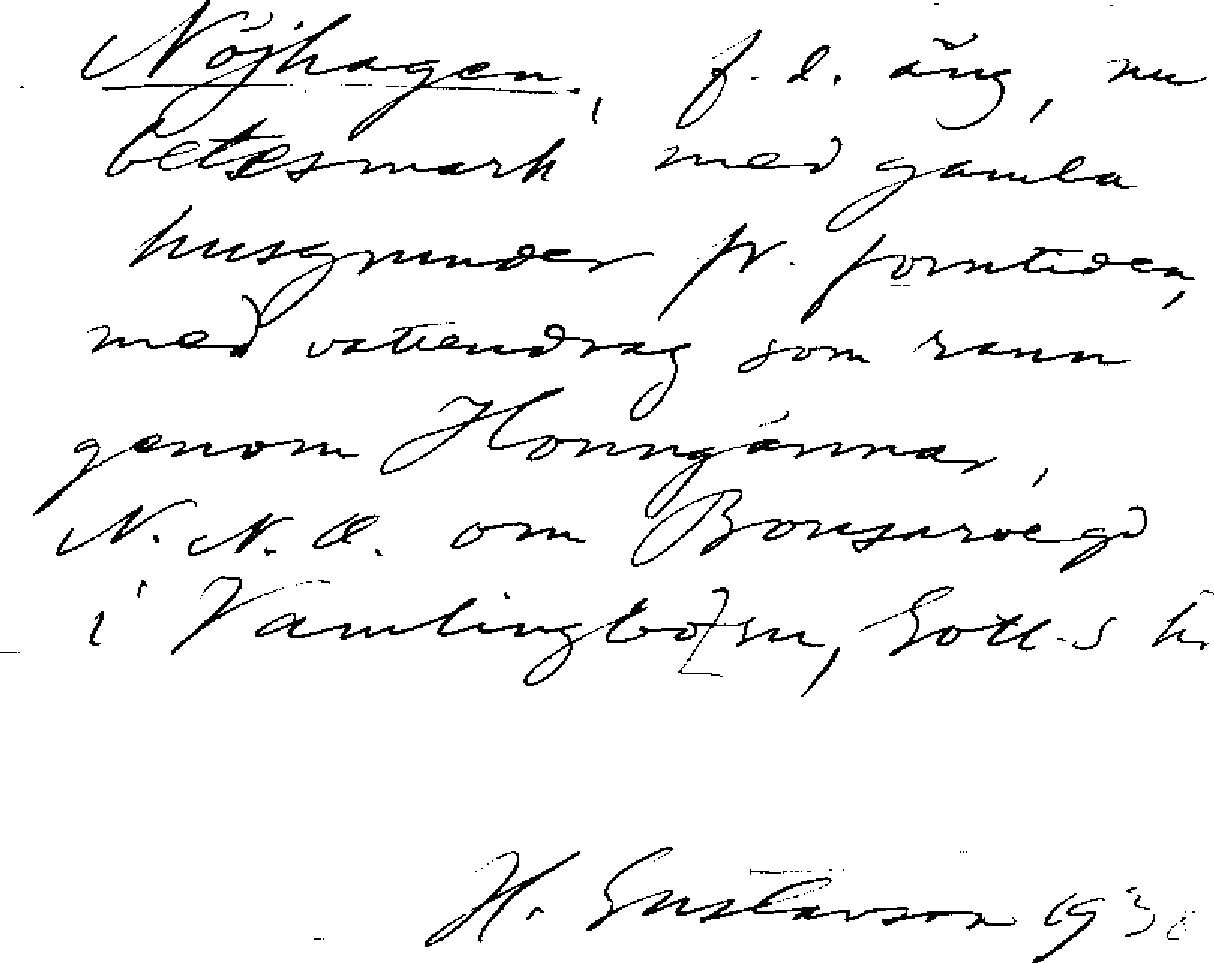 Nöjhagen, f. d. äng, nu
betesmark med gamla
husgrunder fr. forntiden,
med vattendrag som rann
genom Honngánnar,
N. N. O. om Bonsarve gd
i Vamlingbo sn, Gotl-s
H. Gustavson 193